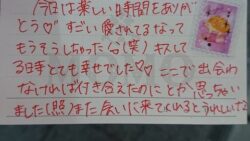 今日は楽しい時間をありが
とう♡すごい愛されてるなって
もうそうしちゃった(笑)キんして
る時とても幸せでした♡ここで出会わ
なければ付き合えたのにとか思っちゃい
ました(照)また会いに来てくれるとうれしいな♪